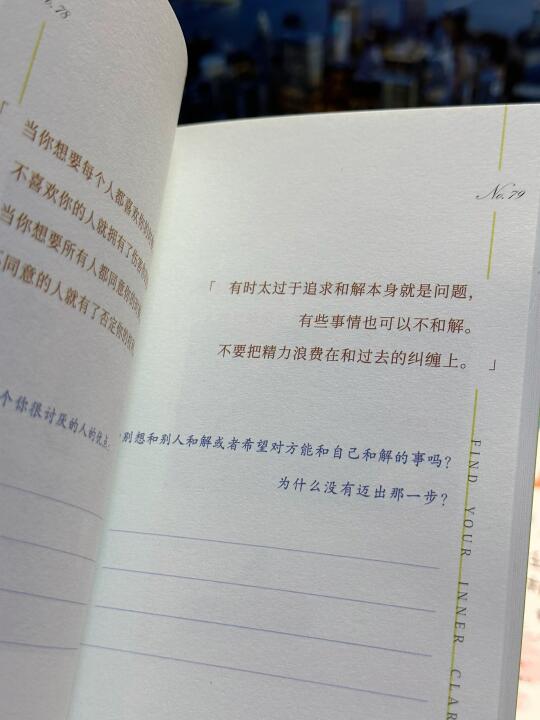 No. 78
「 当你想要每个人都喜欢你的
不喜欢你的人就拥有了
当你想要所有人都同意你的
不同意的人就有了否定你的
个你很讨厌的人的优点。
No. 79
「 有时太过于追求和解本身就是问题，
有些事情也可以不和解。
不要把精力浪费在和过去的纠缠上。 」
别想和别人和解或者希望对方能和自己和解的事吗？
为什么没有迈出那一步？
FIND YOUR INNER CLAR